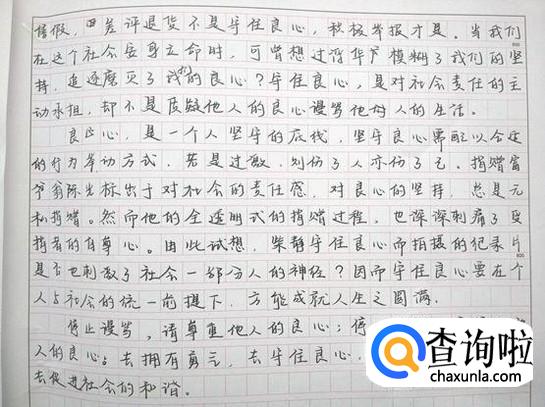 售假,因差评退货不是守住良心,积极举报才是。当我们
在这个社会安身立命时,可曾想过浮华模糊了我们的坚
持,追逐磨灭了我们的良心?守住良心,是对社会责任的主
动承担,却不是质疑他人的良心谩骂他对人的生活。
良心,是一个人坚守的底线,坚守良心需配以合适
的行为举动方式,若是过激,则伤了人亦伤了己。捐赠富
翁陈光标出于对社会的责任感,对良心的坚持,总是无
私捐赠。然而他的全透明式的捐赠过程,也深深刺痛了受
捐者的自尊心。由此试想,柴静守住良心而拍摄的纪录片
是否也刺激了社会一部分人的神经?因而守住良心要在个
人与社会的统一前提下,方能成就人生之圆满。
停止谩骂,请尊重他人的良心;停
人的良心。去拥有勇气,去守住良心,
去促进社会的和谐。
800
查询啦
chaxunla.com